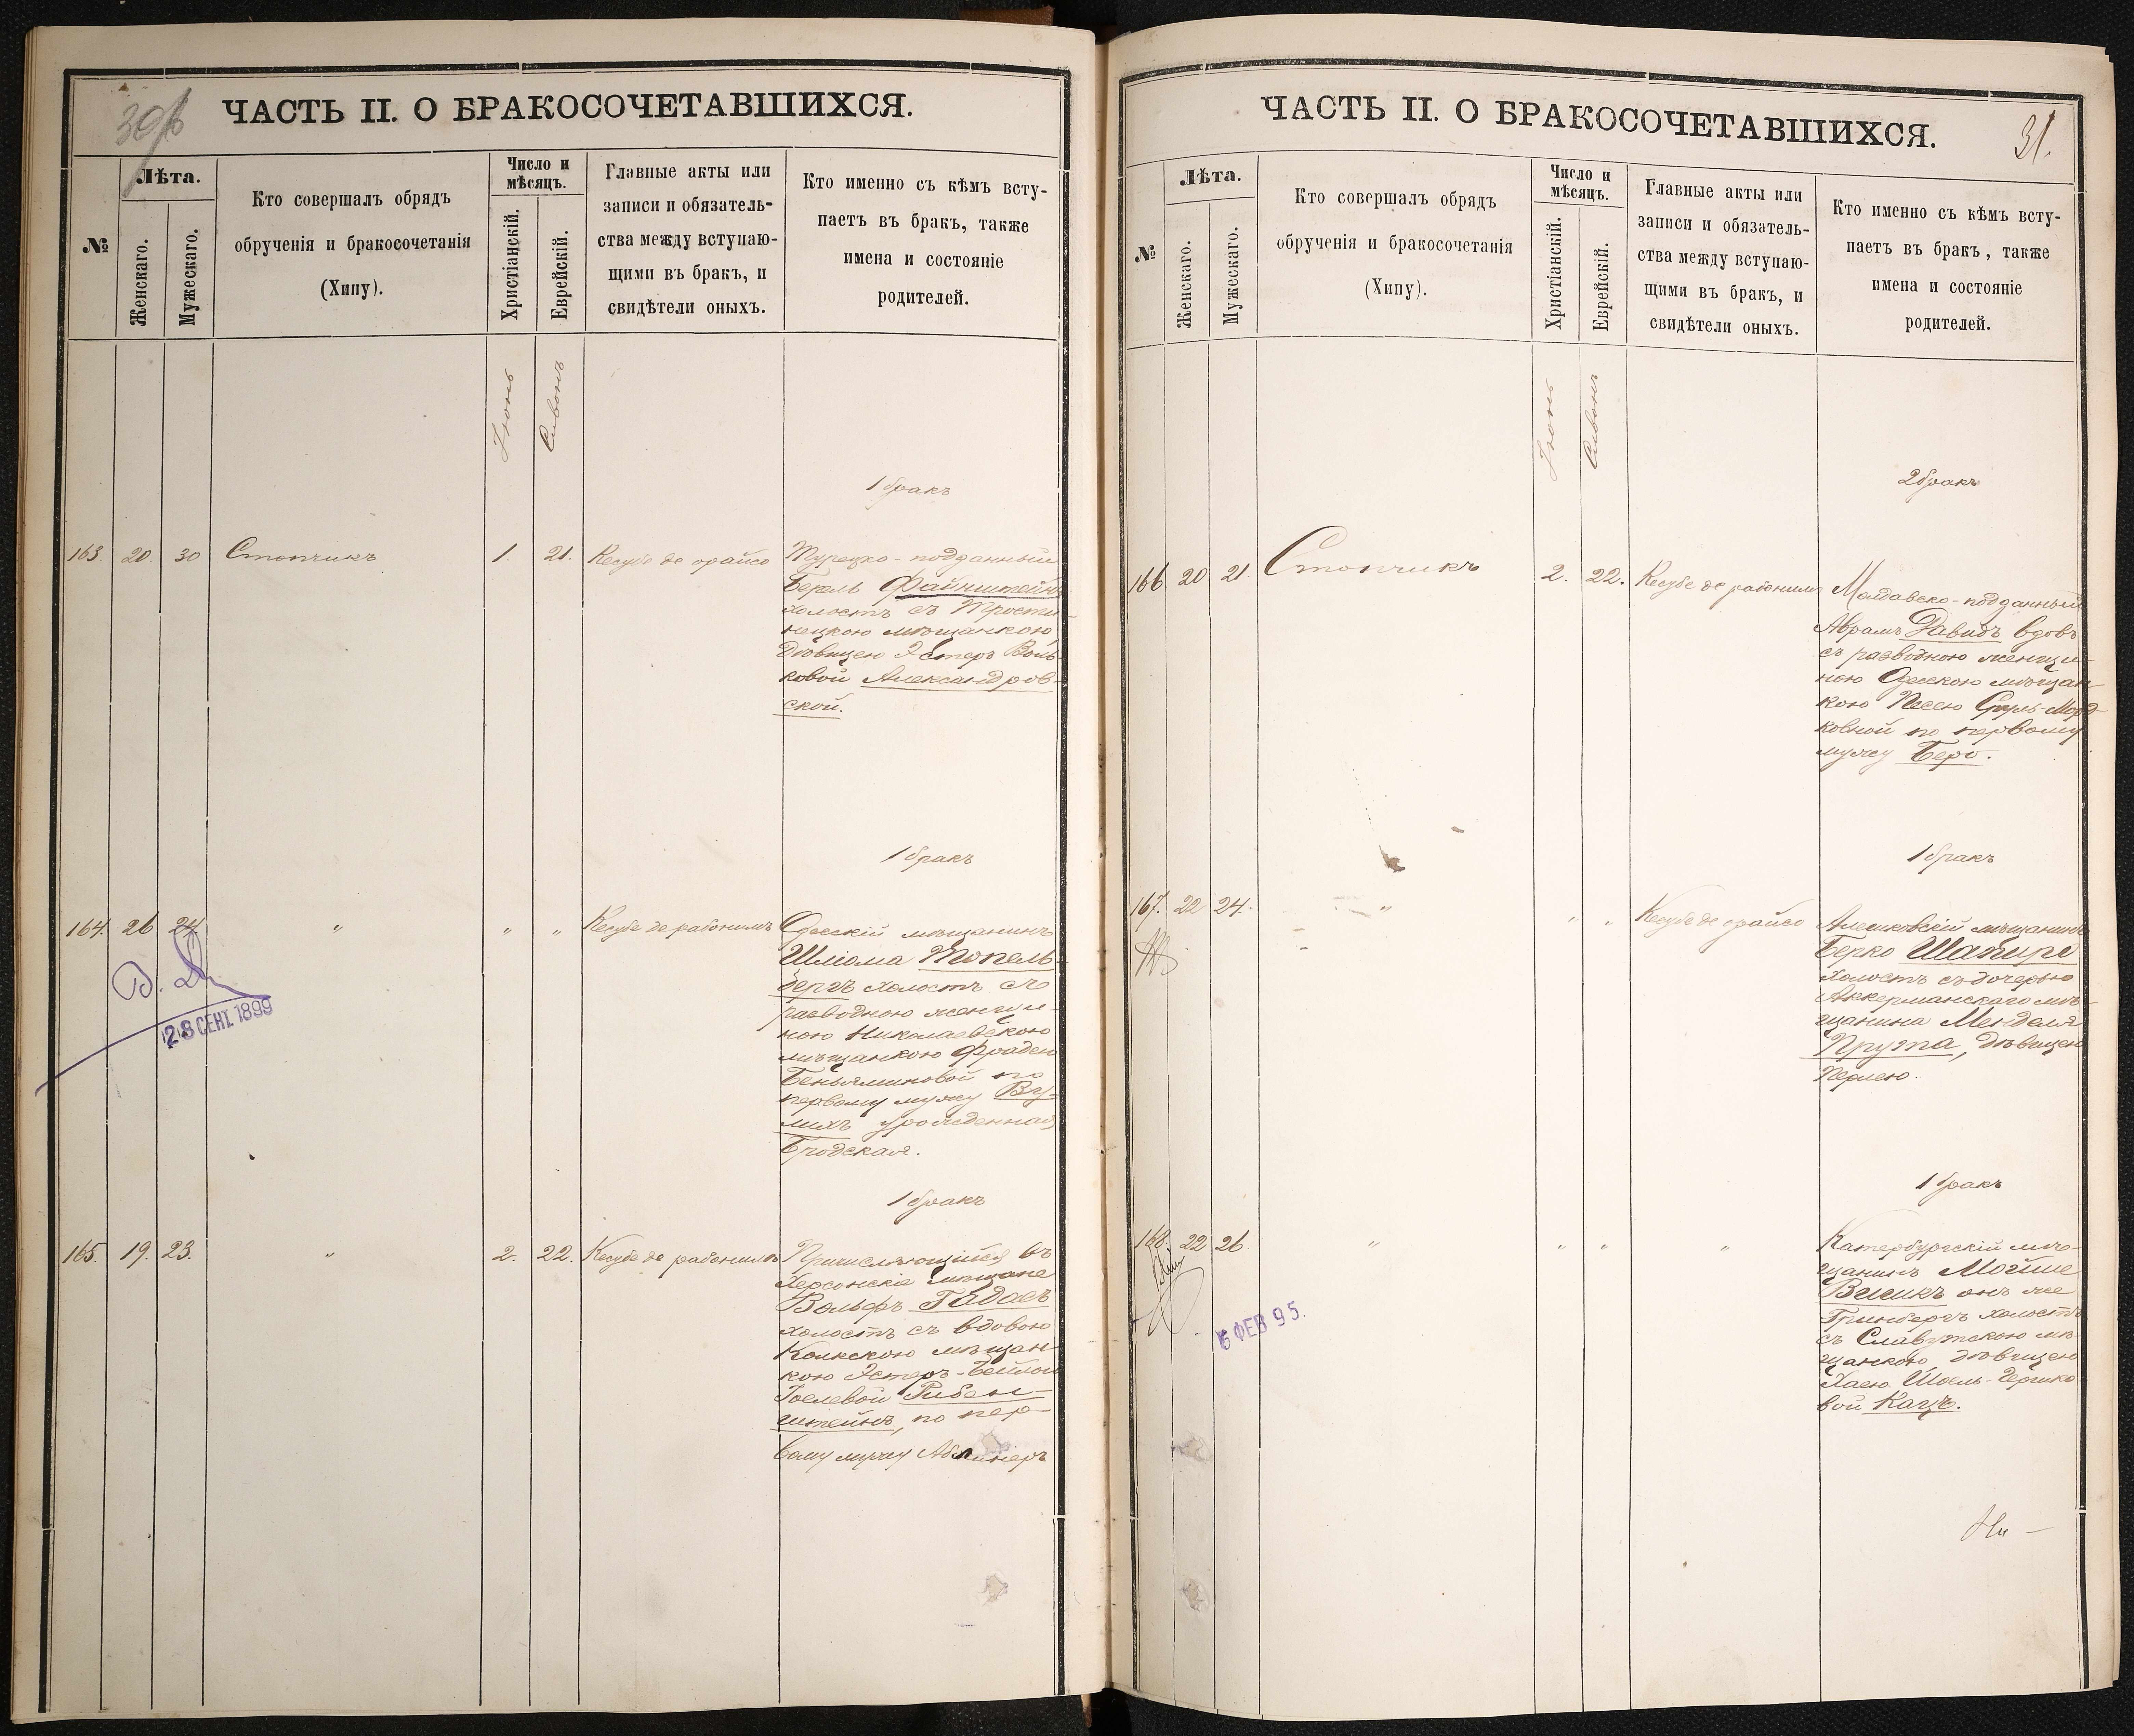 30 об
ЧАСТЬ II. О БРАКОСОЧЕТАВШИХСЯ.
№
Лѣта.
Женскаго.
Мужескаго.
Кто совершалъ обрядъ
обрученія и бракосочетанія
(Хипу).
Число и
мѣсяцъ.
Христіанскій.
Еврейскій.
Главные акты или
записи и обязатель-
ства между вступаю-
щими въ бракъ, и
свидѣтели оныхъ.
Кто именно съ кѣмъ всту-
паетъ въ бракъ, также
имена и состояніе
родителей.
Іюнь
Сивонъ
1 бракъ
163. 20. 30 Стопчикъ 1. 21. Кесубе де орайсо
Турецко-подданный
Берль Файнштейнъ
холостъ съ Трости
нецкою мѣщанкою
дѣвицею Эстеръ Воль-
ковой Александров-
ской.
1 бракъ
164. 26 24 " " " Кесубе де рабонимъ
Одесскій мѣщанинъ
Шліома Топель-
бергъ холостъ съ
разводною женщи-
ною Николаевскою
мѣщанкою Фрадею
Беньяминовой по
первому мужу Ву-
лихъ урожденная
Бродская.
28 СЕНТ. 1899
1 бракъ
165. 19. 23. " 2. 22. Кесубе де рабонимъ
Причисляющійся въ
Херсонскіе мѣщане
Вольфъ Гидаевъ
холостъ съ вдовою
Колкскою мѣщан-
кою Эстеръ-Бейлою
Іоелевой Рибен-
штейнъ, по пер-
вому мужу
ЧАСТЬ II. О БРАКОСОЧЕТАВШИХСЯ.
31.
№
Лѣта.
Женскаго.
Мужескаго.
Кто совершалъ обрядъ
обрученія и бракосочетанія
(Хипу).
Число и
мѣсяцъ.
Христіанскій.
Еврейскій.
Главные акты или
записи и обязатель-
ства между вступаю-
щими въ бракъ, и
свидѣтели оныхъ.
Кто именно съ кѣмъ всту-
паетъ въ бракъ, также
имена и состояніе
родителей.
Іюнь
Сивонъ
2 бракъ
166. 20. 21. Стопчикъ 2. 22. Кесубе де рабонимъ
Молдавско-подданный
Абрамъ Давидъ вдовъ
съ разводною женщи-
ною Одесскою мѣщан-
кою Песею Сруль-Морд-
ковной по первому
мужу Беро.
1 бракъ
167. 22 24. " " " Кесубе де орайсо
Алешковскій мѣщанинъ
Берко Шапиро
холостъ съ дочерью
Аккерманскаго мѣ-
щанина Менделя
Прута, дѣвицею
Перлею.
1 бракъ
168. 22 26. " " " "
Катербургскій мѣ-
щанинъ Мойше
Висикъ онъ же
Гринбергъ холостъ
съ Славутскою мѣ-
щанкою, дѣвицею
Хаею Шоель-Гершко
вой Кацъ.
6 ФЕВ 95.